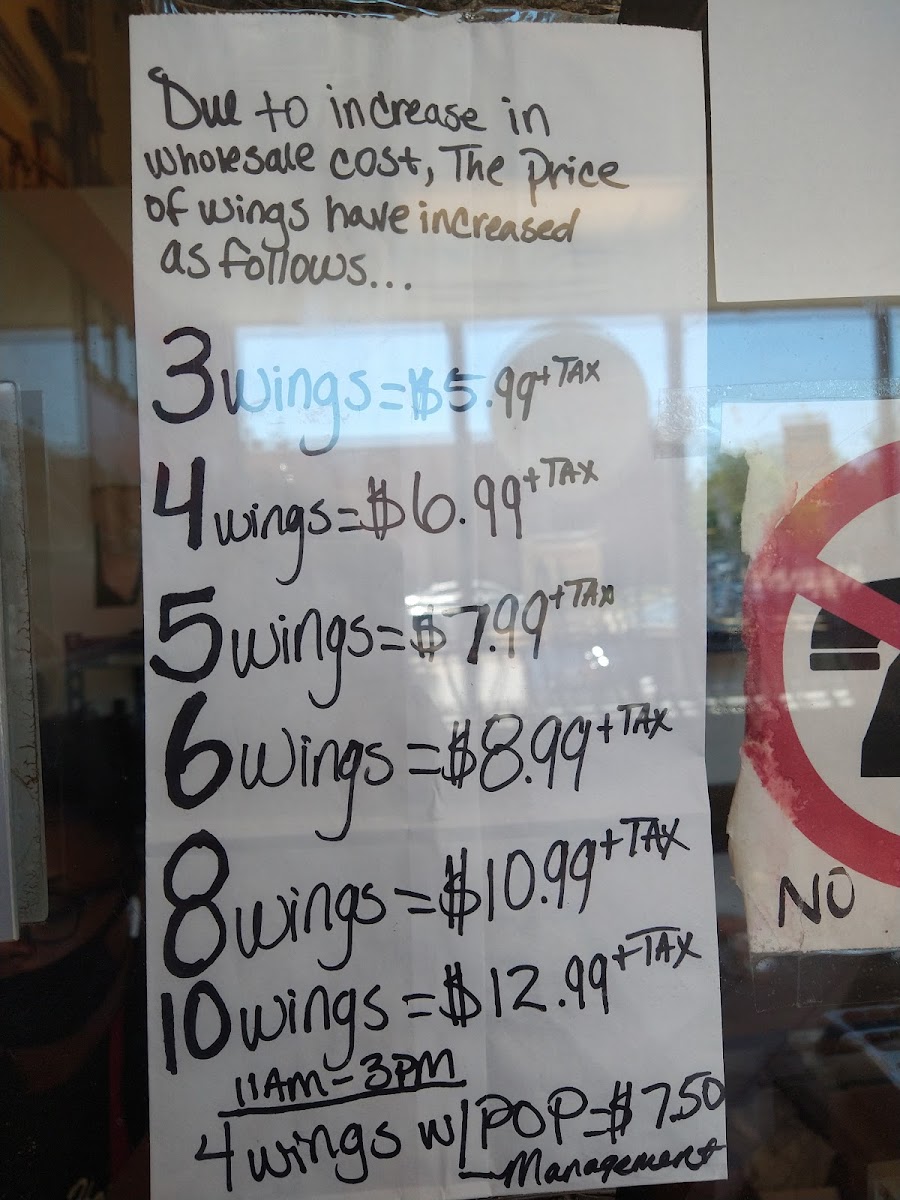 Due to increase in
wholesale cost, The price
of wings have increased
as follows...
3 wings = $5.99 + TAX
4 wings = $6.99 + TAX
5 wings = $7.99 + TAX
6 wings = $8.99 + TAX
8 wings = $10.99 + TAX
10 wings = $12.99 + TAX
11AM - 3PM
4 wings w/ POP = $7.50
- Management
NO